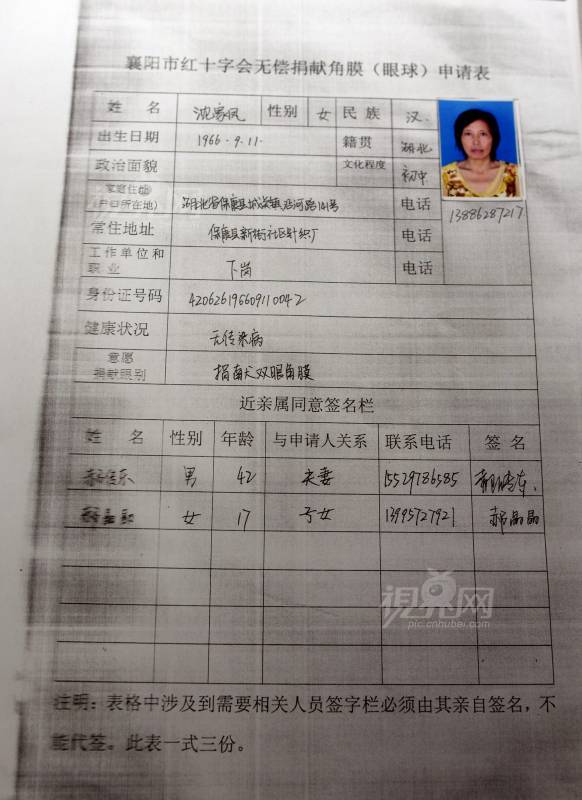 襄阳市红十字会无偿捐献角膜（眼球）申请表
姓 名 性别 女 民 族 汉
出生日期 1966.9.11. 籍贯 湖北
政治面貌 文化程度 初中
家庭住址
（户口所在地） 湖北省保康县城关镇 河路141号 电话 13886287217
常住地址 保康县新街社区针织厂 电话
工作单位和
职 业 下岗 电话
身份证号码 420626196609110042
健康状况 无传染病
意愿
捐献眼别 捐献 双眼角膜
近亲属同意签名栏
姓 名 性别 年龄 与申请人关系 联系电话 签 名
男 42 夫妻 15529786585
女 17 子女 13995727921 郝晶晶
視界网
pic.cnhubei.com
注明：表格中涉及到需要相关人员签字栏必须由其亲自签名，不
能代签。此表一式三份。